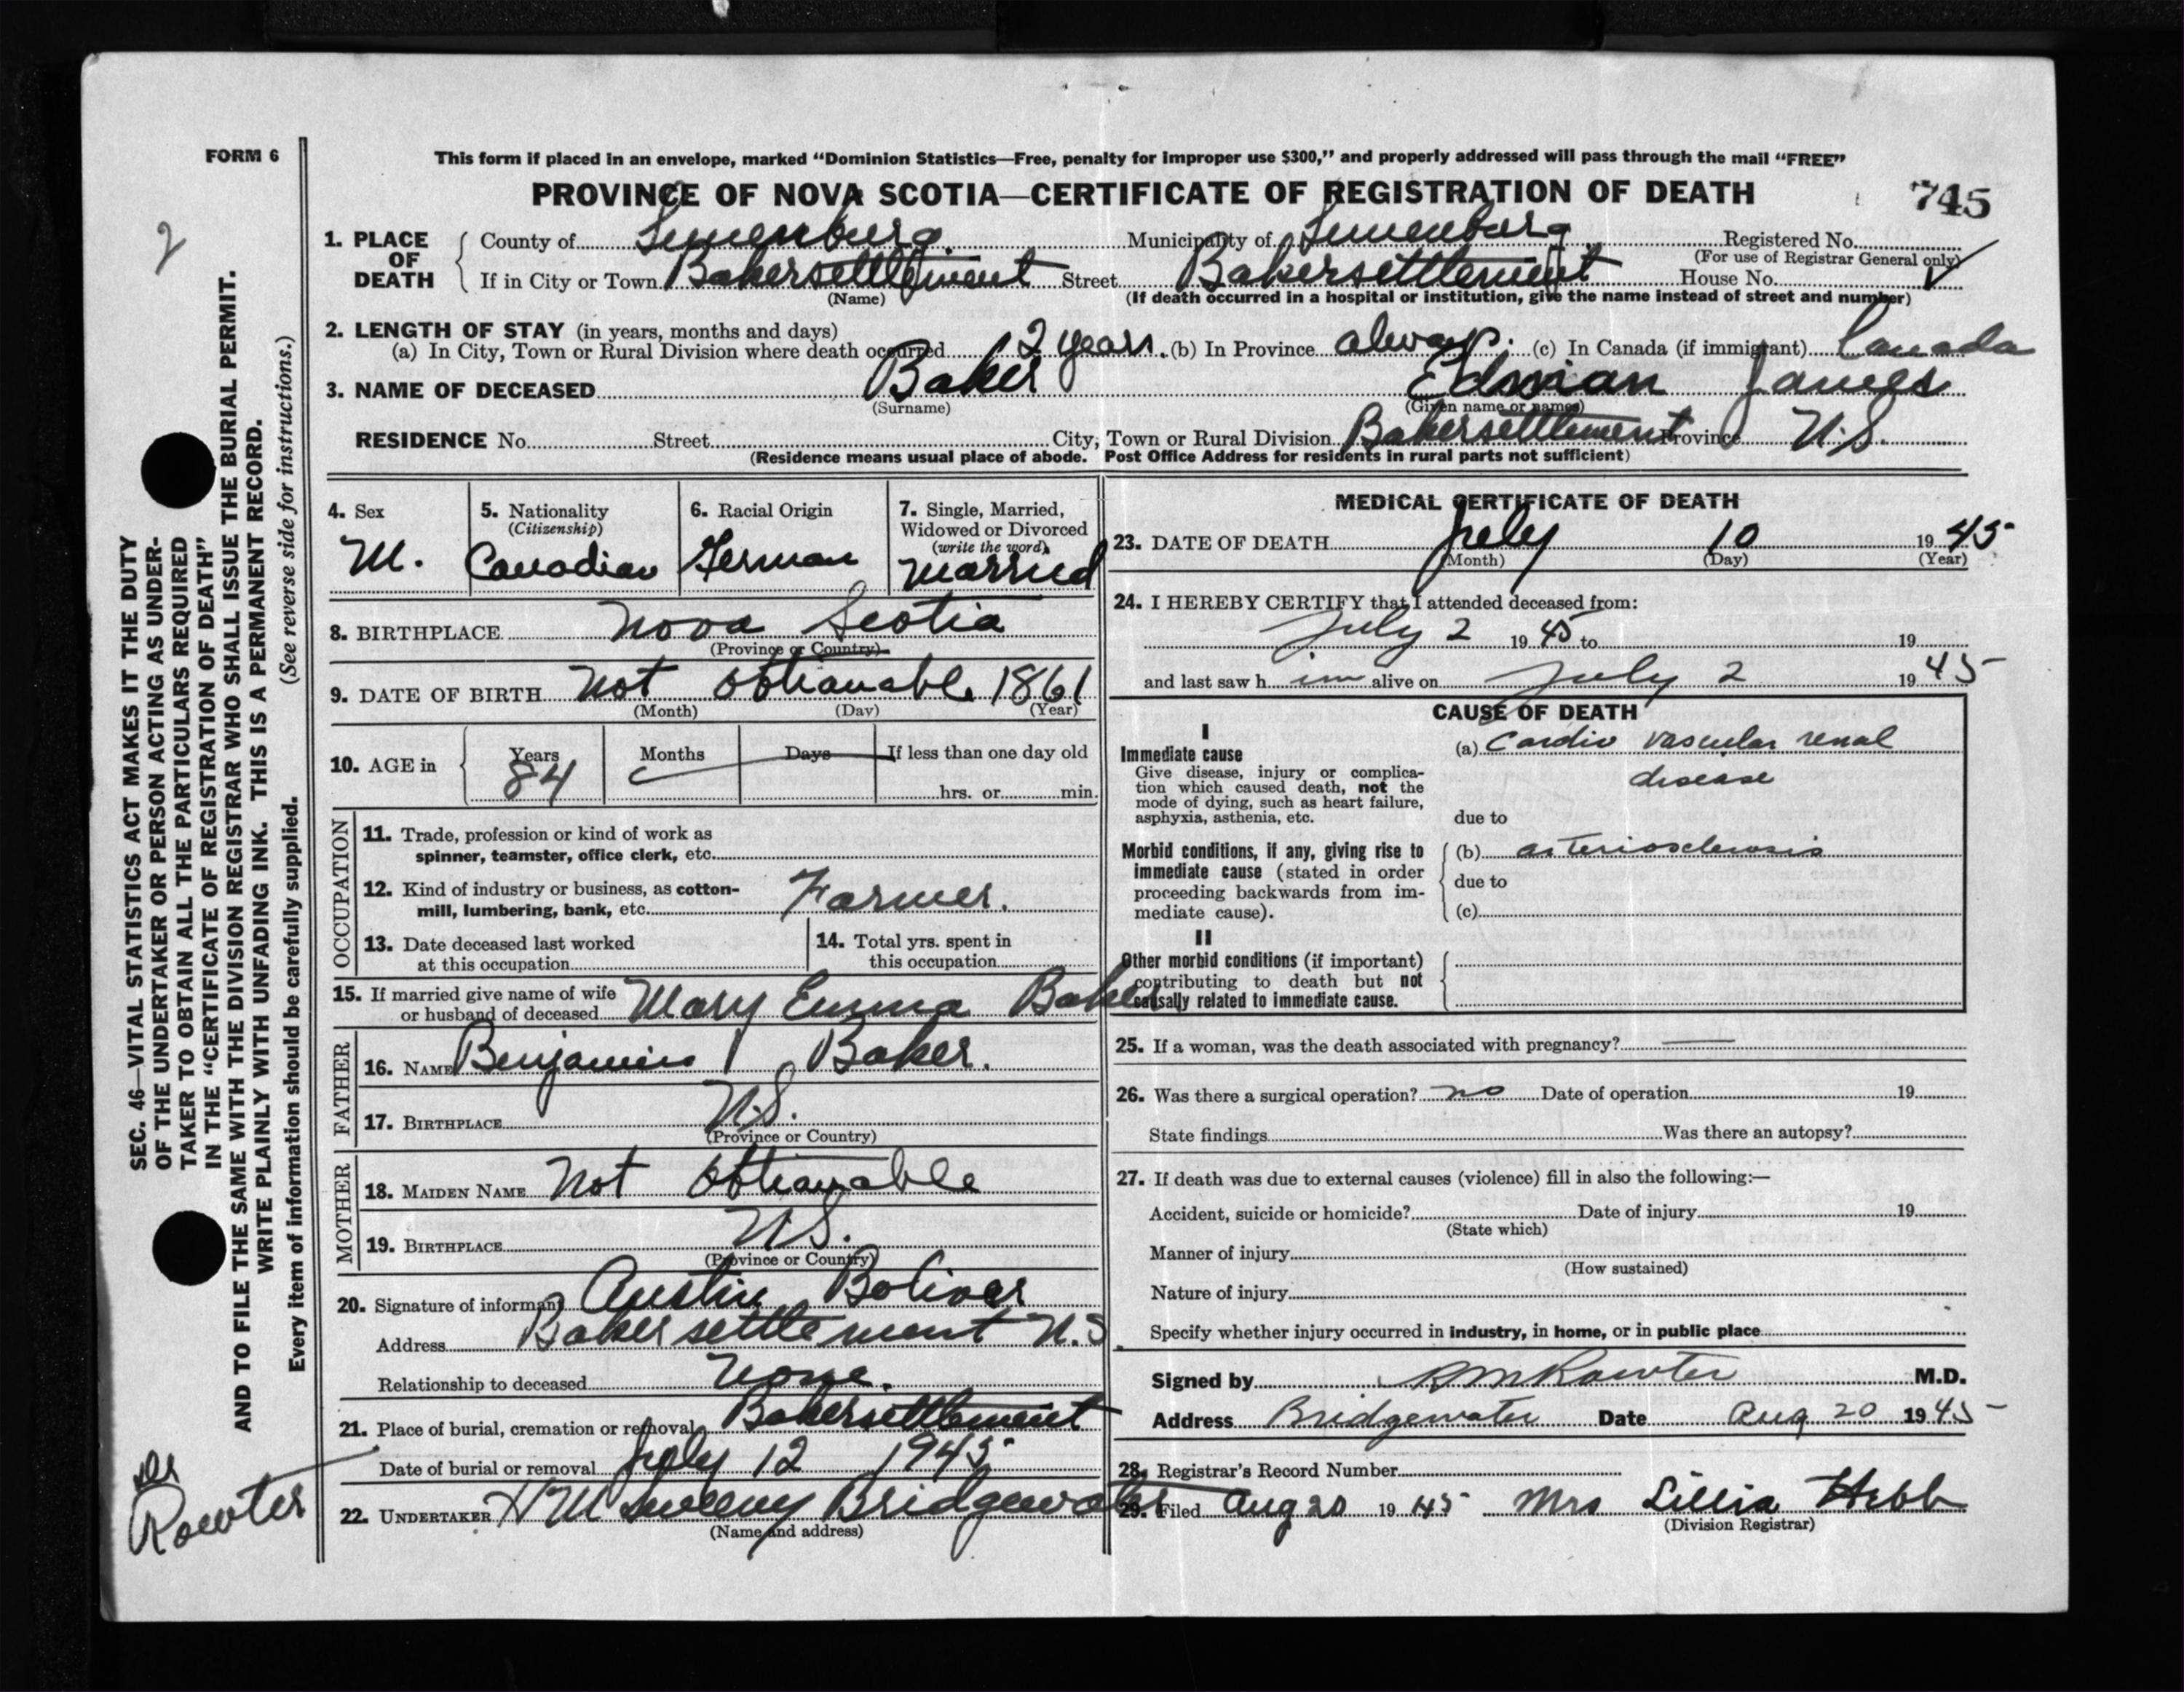 FORM 6
This form if placed in an envelope, marked “Dominion Statistics—Free, penalty for improper use $300,” and properly addressed will pass through the mail “FREE”
PROVINCE OF NOVA SCOTIA—CERTIFICATE OF REGISTRATION OF DEATH
745
2
1. PLACE OF DEATH
County of Lunenburg. Municipality of Lunenburg Registered No.
(For use of Registrar General only)
If in City or Town Bakersettlement Street Bakersettlement House No.
(Name) (If death occurred in a hospital or institution, give the name instead of street and number)
2. LENGTH OF STAY (in years, months and days)
(a) In City, Town or Rural Division where death occurred 2 years. (b) In Province always. (c) In Canada (if immigrant) Canada
3. NAME OF DECEASED Baker James
(Surname) (Given name or names)
RESIDENCE No. Street City, Town or Rural Division Bakersettlement Province N.S.
(Residence means usual place of abode. Post Office Address for residents in rural parts not sufficient)
4. Sex
M.
5. Nationality
(Citizenship)
Canadian
6. Racial Origin
German
7. Single, Married,
Widowed or Divorced
(write the word)
Married
8. BIRTHPLACE Nova Scotia
(Province or Country)
9. DATE OF BIRTH Not obtianable 1861
(Month) (Day) (Year)
10. AGE in Years Months Days If less than one day old
84 hrs. or min.
OCCUPATION
11. Trade, profession or kind of work as
spinner, teamster, office clerk, etc.
12. Kind of industry or business, as cotton-
mill, lumbering, bank, etc. Farmer.
13. Date deceased last worked
at this occupation
14. Total yrs. spent in
this occupation
15. If married give name of wife
or husband of deceased Mary Emma Baker
FATHER
16. NAME Benjamin Baker.
17. BIRTHPLACE N.S.
(Province or Country)
MOTHER
18. MAIDEN NAME Not obtianable
19. BIRTHPLACE N.S.
(Province or Country)
20. Signature of informant Austin Boliver
Address Bakersettlement N.S.
Relationship to deceased None.
21. Place of burial, cremation or removal Bakersettlement
Date of burial or removal July 12 1945
22. UNDERTAKER H M Sweeny Bridgewater
(Name and address)
MEDICAL CERTIFICATE OF DEATH
23. DATE OF DEATH July 10 1945
(Month) (Day) (Year)
24. I HEREBY CERTIFY that I attended deceased from:
July 2 1945 to 19
and last saw him alive on July 2 1945
CAUSE OF DEATH
I
Immediate cause
Give disease, injury or complica-
tion which caused death, not the
mode of dying, such as heart failure,
asphyxia, asthenia, etc.
(a) Cardio vascular renal
disease
due to
Morbid conditions, if any, giving rise to
immediate cause (stated in order
proceeding backwards from im-
mediate cause).
(b) arteriosclerosis
due to
(c)
II
Other morbid conditions (if important)
contributing to death but not
causally related to immediate cause.
25. If a woman, was the death associated with pregnancy? —
26. Was there a surgical operation? no Date of operation 19
State findings Was there an autopsy?
27. If death was due to external causes (violence) fill in also the following:—
Accident, suicide or homicide? Date of injury 19
(State which)
Manner of injury
(How sustained)
Nature of injury
Specify whether injury occurred in industry, in home, or in public place
Signed by Rowter M.D.
Address Bridgewater Date Aug 20 1945
28. Registrar's Record Number
29. Filed Aug 20 1945 Mrs Lillia Hebb
(Division Registrar)
SEC. 46—VITAL STATISTICS ACT MAKES IT THE DUTY
OF THE UNDERTAKER OR PERSON ACTING AS UNDER-
TAKER TO OBTAIN ALL THE PARTICULARS REQUIRED
IN THE “CERTIFICATE OF REGISTRATION OF DEATH”
AND TO FILE THE SAME WITH THE DIVISION REGISTRAR WHO SHALL ISSUE THE BURIAL PERMIT.
WRITE PLAINLY WITH UNFADING INK. THIS IS A PERMANENT RECORD.
Every item of information should be carefully supplied. (See reverse side for instructions.)
Dr
Rowter